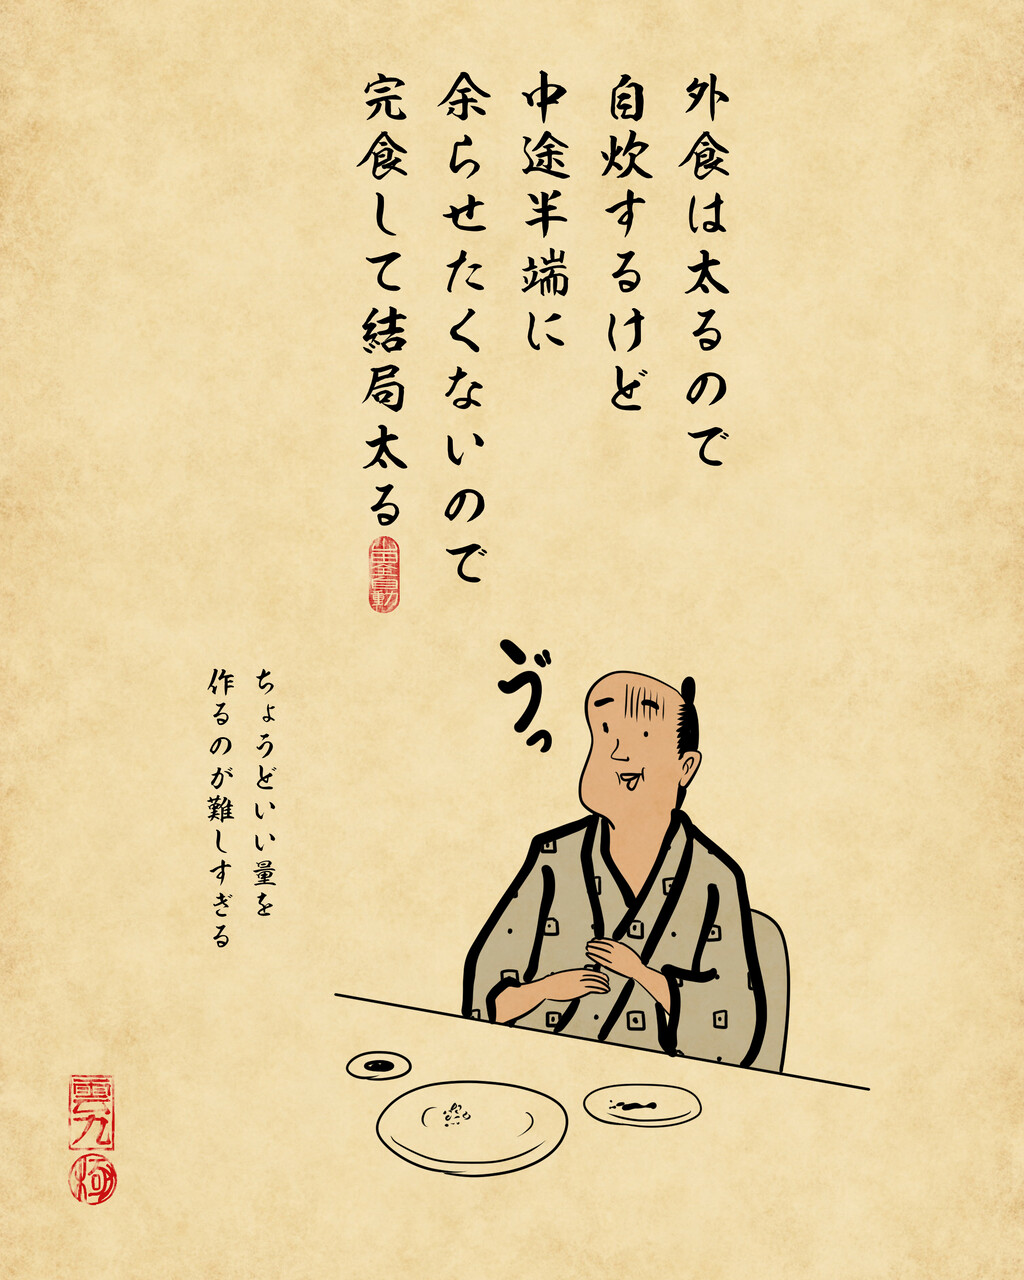 外食は太るので
自炊するけど
中途半端に
余らせたくないので
完食して結局太る
ゔっ
ちょうどいい量を
作るのが難しすぎる